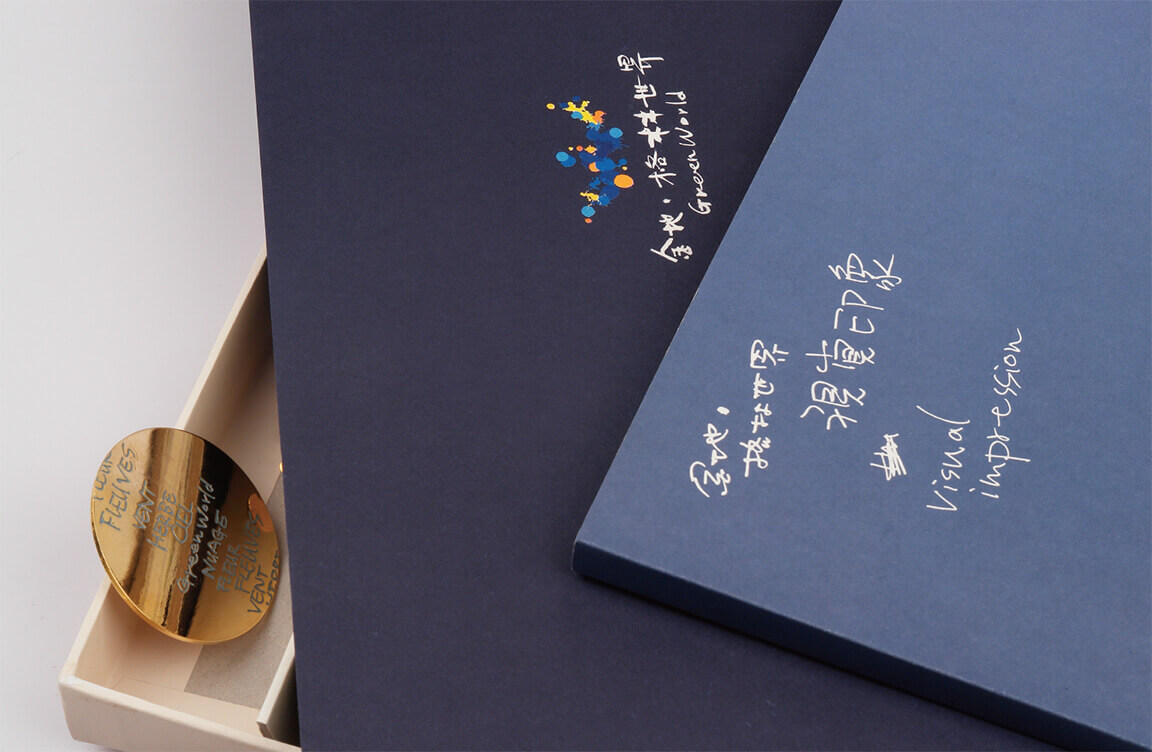 金地·格林世界
Green World
金地·
格林世界
視覺印象
visual
impression
FLEUR
FLEUVES
VENT
HERBE
CIEL
Green World
NUAGE
FLEUR
FLEUVES
VENT